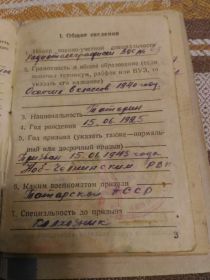 I. Общие сведения
1. Номер военно-учетной специальности
2. Грамотность и общее образование (если
окончил техникум, рабфак или ВУЗ, то
указать его название)
Окончил 8 классов 1940 год.
3. Национальность Татарин
4. Год рождения 15.06.1925
5. Год призыва (указать также—нормаль-
ный или досрочный призыв)
Призван 15.01.1943 года
РВК
6. Каким военкоматом призван
Татарской АССР
7. Специальность до призыва
Колхозник
3